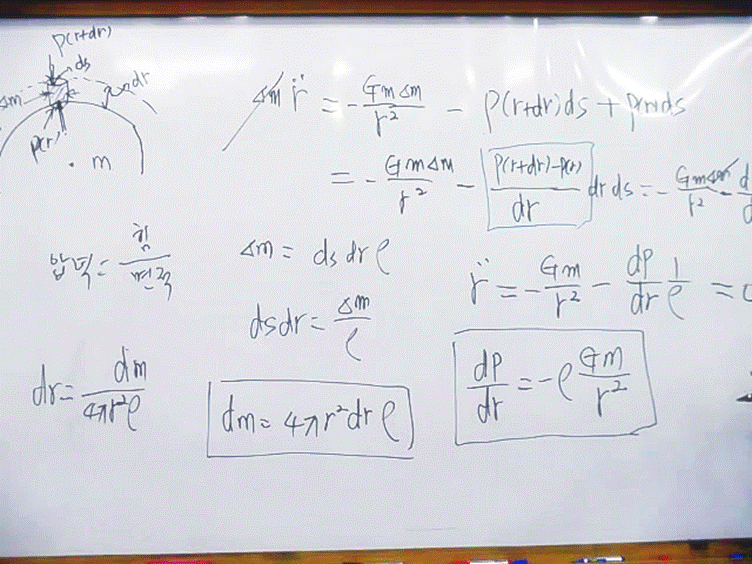 P(r+dr)
ds
dr
Δm
P(r)
m
Δm r̈ = - GmΔm/r² - P(r+dr)ds + P(r)ds
= - GmΔm/r² - (P(r+dr)-P(r))/dr dr ds = - GmΔm/r² -
압력 = 힘/면적
Δm = ds dr ρ
r̈ = - Gm/r² - dP/dr 1/ρ =
ds dr = Δm/ρ
dr = dm/4πr²ρ
dm = 4πr²dr ρ
dP/dr = -ρ Gm/r²